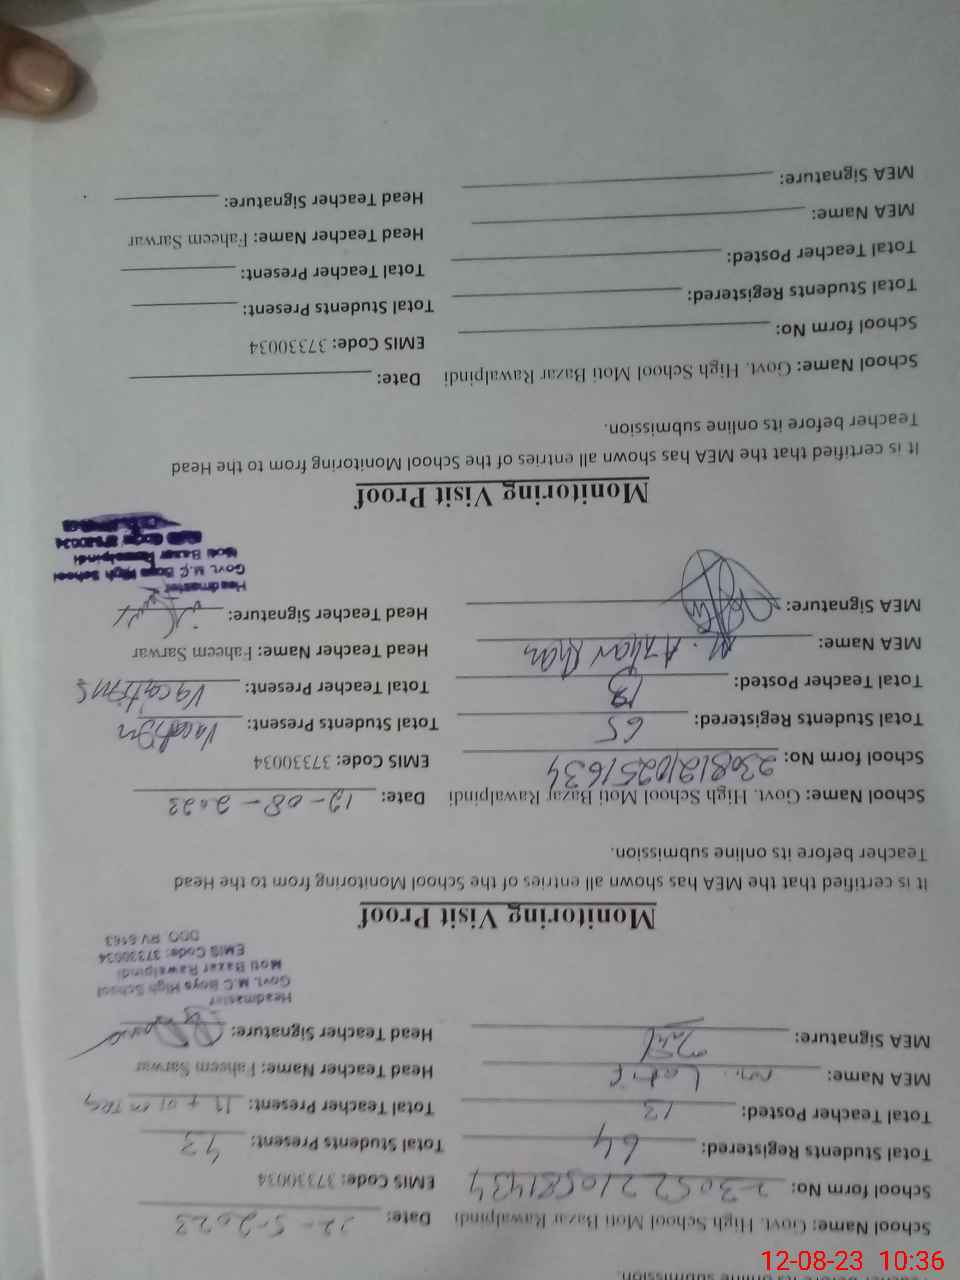 Teacher before its online submission.
School Name: Govt. High School Moti Bazar Rawalpindi Date: 22-5-2023
School form No: 23052210581434 EMIS Code: 37330034
Total Students Registered: 64 Total Students Present: 43
Total Teacher Posted: 13 Total Teacher Present: 11 + 01 on
MEA Name: M. Latif Head Teacher Name: Faheem Sarwar
MEA Signature: Head Teacher Signature:
Headmaster
Govt. M.C Boys High School
Moti Bazar Rawalpindi
EMIS Code: 37330034
DDO RV 6163
Monitoring Visit Proof
It is certified that the MEA has shown all entries of the School Monitoring from to the Head
Teacher before its online submission.
School Name: Govt. High School Moti Bazar Rawalpindi Date: 12-08-2023
School form No: 230812110251634 EMIS Code: 37330034
Total Students Registered: 65 Total Students Present: Vacation
Total Teacher Posted: 13 Total Teacher Present: Vacations
MEA Name: M. Azhar Khan Head Teacher Name: Faheem Sarwar
MEA Signature: Head Teacher Signature:
Headmaster
Govt. M.C Boys High School
Moti Bazar Rawalpindi
Monitoring Visit Proof
It is certified that the MEA has shown all entries of the School Monitoring from to the Head
Teacher before its online submission.
School Name: Govt. High School Moti Bazar Rawalpindi Date:
School form No: EMIS Code: 37330034
Total Students Registered: Total Students Present:
Total Teacher Posted: Total Teacher Present:
MEA Name: Head Teacher Name: Faheem Sarwar
MEA Signature: Head Teacher Signature:
12-08-23 10:36